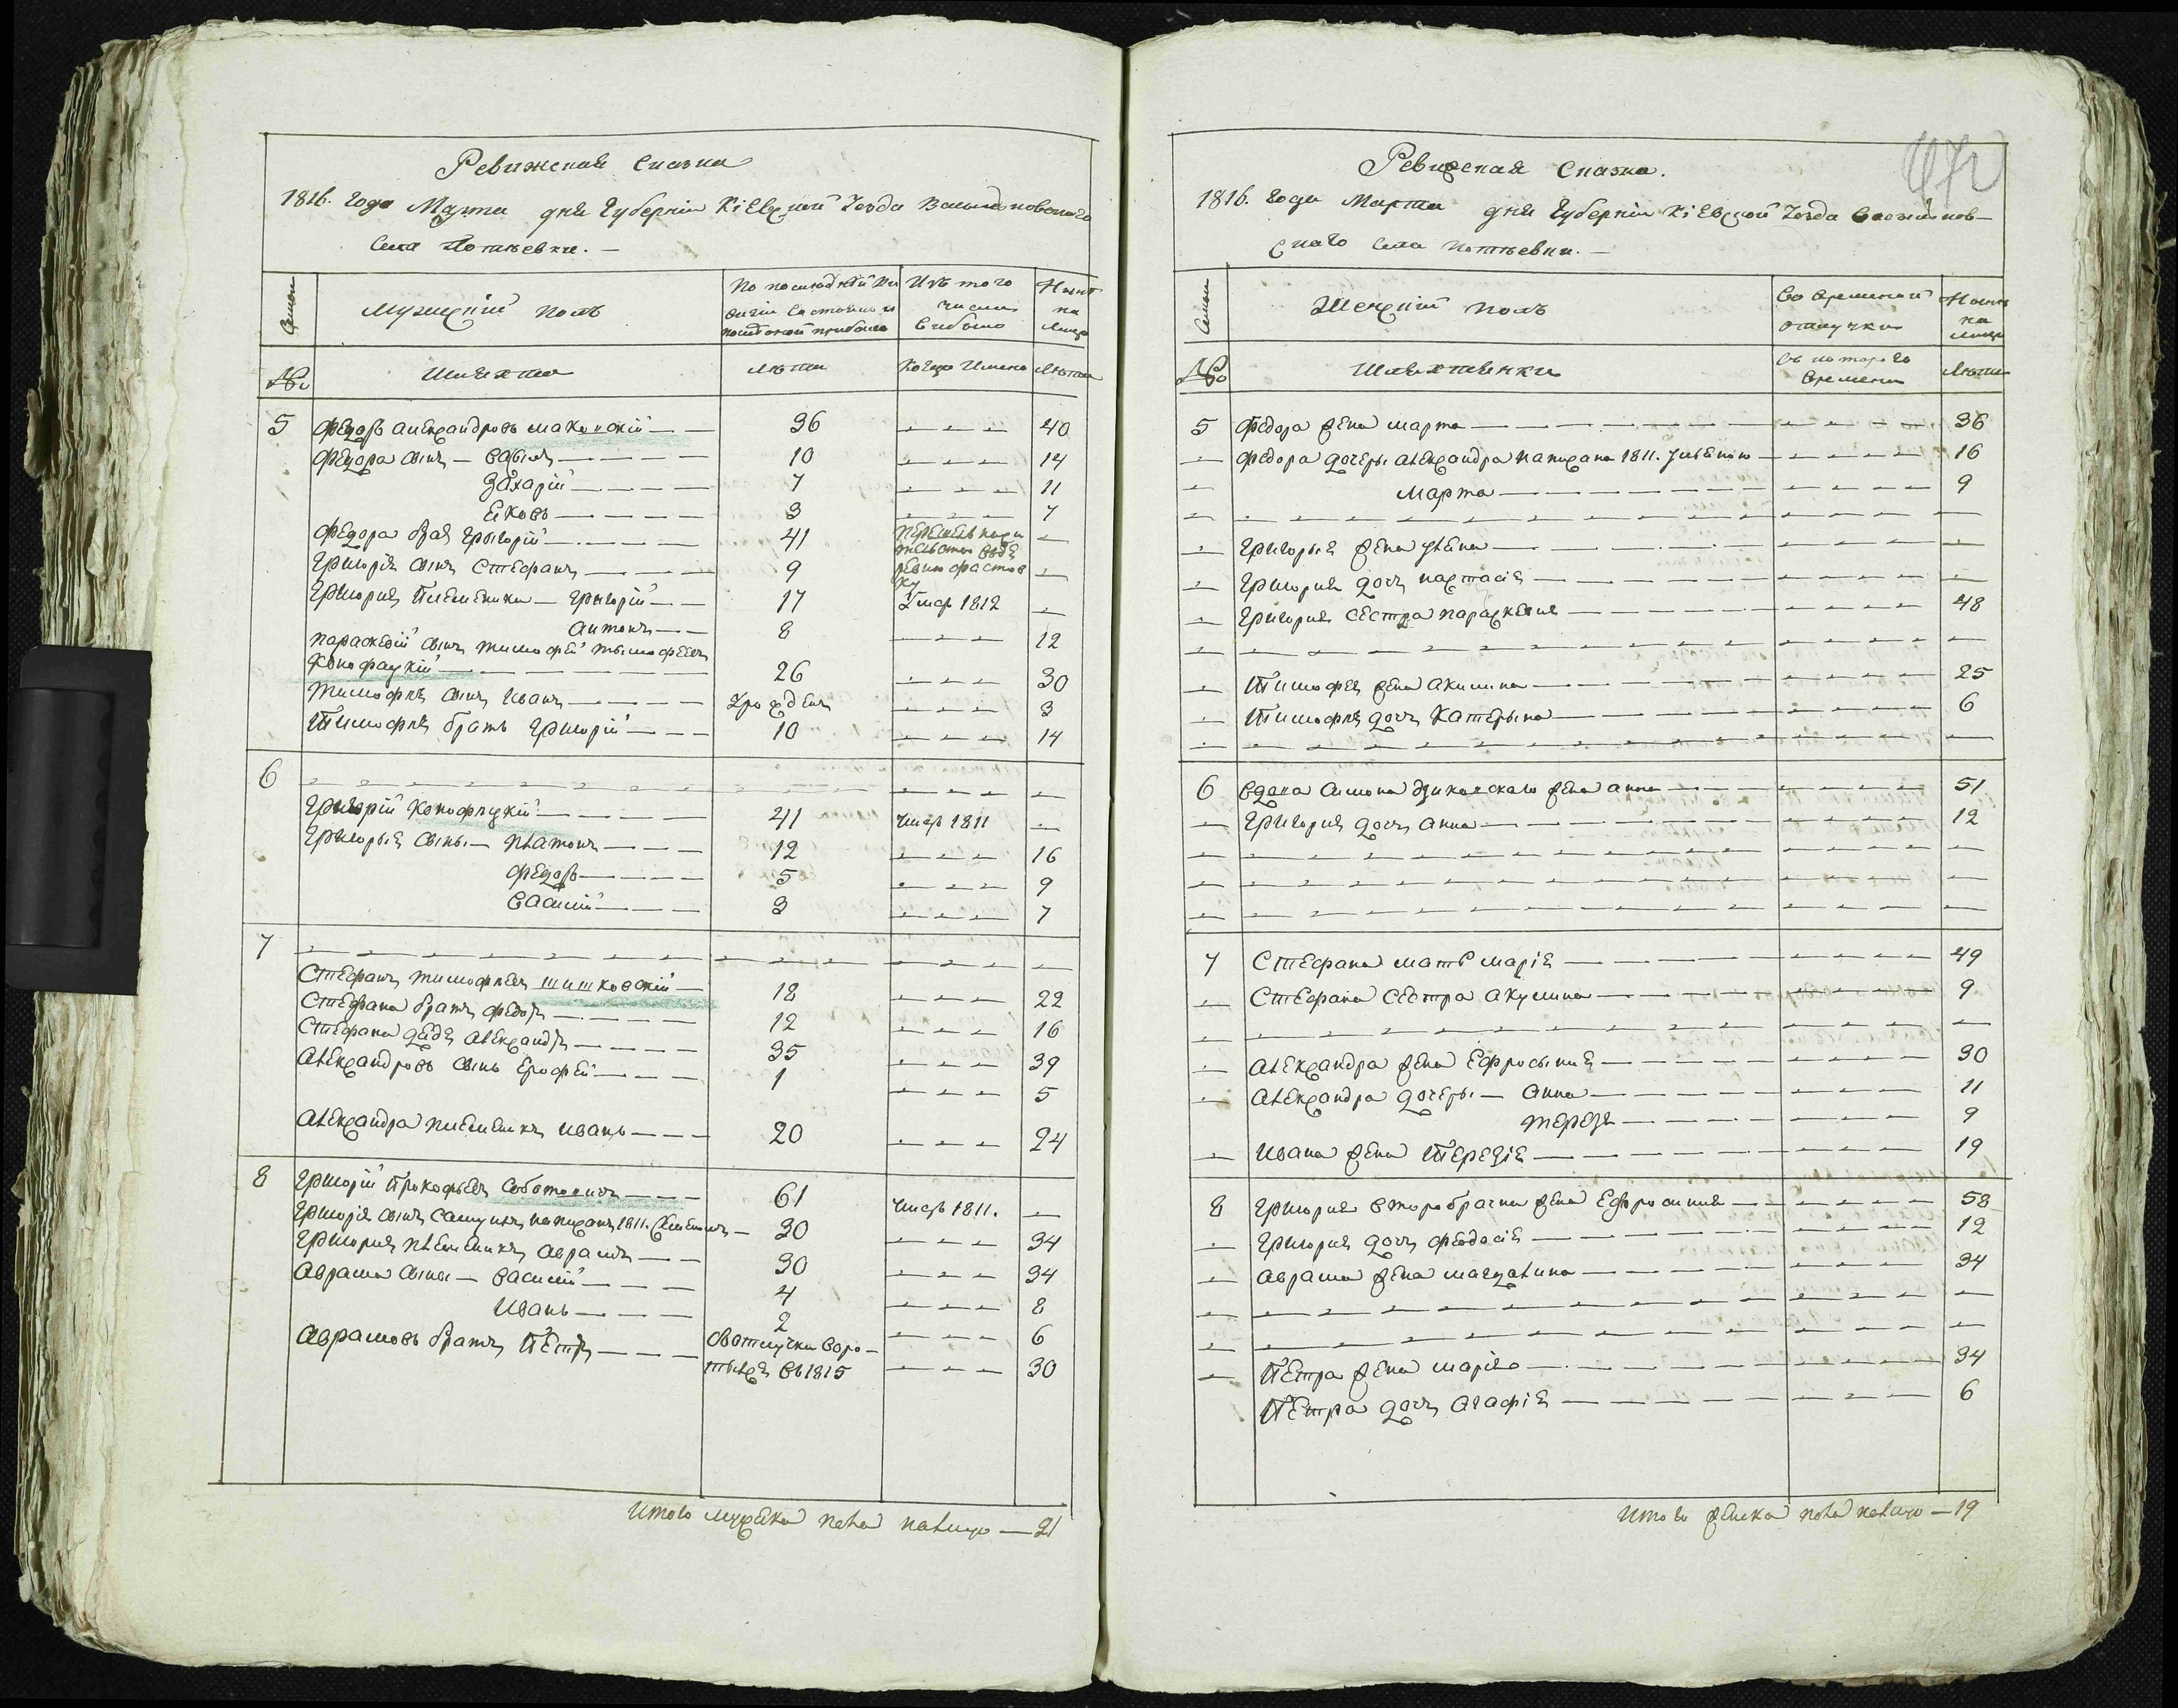 Ревижская Сказка
1816. года Марта дня Губернiи Кiевской Уезда Васильковскаго
Села Потиевки. —
Семьи
Мужескiй полъ
По последней ре
визiи состояло и
после оной прибыло
Изъ того
числа
выбыло
Ныне
на
лицо
№
Шляхта
Лета
Когда Имено
Лета
5 Федоръ Александровъ Маковскiй — — 36 — — — 40
Федора сынъ — Савичъ — — — — 10 — — — 14
Захарiй — — — — 7 — — — 11
Яковъ — — — — 3 — — — 7
Федора братъ Григорiй — — — 41 —
Григорiя сынъ Стефанъ — — — 9 —
Григорiя племеники — Григорiй — — 17 Умар 1812 —
Антонъ — — 8 — — — 12
Параскевiи сынъ Тимофей Тимофеевъ
Конофацкiй — — — — — 26 — — — 30
Тимофея сынъ Иванъ — — — — рожденъ — — — 3
Тимофея братъ Григорiй — — — 10 — — — 14
6
Григорiй Конофацкiй — — — — 41 Умер 1811 —
Григорыя сыны — Платонъ — — — 12 — — — 16
Федоръ — — — — 5 — — — 9
Василiй — — — — 3 — — — 7
7
Стефанъ Тимофеевъ Шишковскiй — 18 — — — 22
Стефана братъ Федоръ — — — — 12 — — — 16
Стефана дядя Александръ — — — — 35 — — — 39
Александровъ сынъ Ерофей — — — 1 — — — 5
Александра племеникъ Иванъ — — — 20 — — — 24
8 Григорiй Прокофьевъ Соботовичъ — — — 61 Умеръ 1811. —
Григорiя сынъ Самуилъ написанъ 1811. — 30 — — — 34
Григория племеникъ Аврамъ — — 30 — — — 34
Аврама сыны — Василiй — — — 4 — — — 8
Иванъ — — — 2 — — — 6
Аврамовъ братъ Петръ — — — Сотлучки воро-
тылся въ 1815 — — — 30
Итого мужеска пола налицо — 21
Ревижская Сказка.
1816. года Марта дня Губернiи Кiевской Уезда Васильков-
скаго Села Потиевки. —
Семьи
Женскiй полъ
Во временной
отлучки
Ныне
на
лицо
№
Шляхтянки
Съ котораго
времени
Лета
5 Федора жена Марта — — — — 36
— Федора дочеры Александра написана 1811. — — — — 16
— Марта — — — — 9
— Григорыя жена Уляна — — — — —
— Григория дочъ Настасiя — — — — —
— Григория сестра Параскевия — — — — 48
— Тимофея жена Акилина — — — — 25
— Тимофея дочъ Катерына — — — — 6
6 Вдова Симона жена Анна — — — — 51
— Григория дочъ Анна — — — — 12
7 Стефана мать Марiя — — — — 49
— Стефана сестра Акулина — — — — 9
— Александра жена Ефросыния — — — — 30
— Александра дочеры — Анна — — — — 11
Терезя — — — — 9
— Ивана жена Терезiя — — — — 19
8 Григория второбрачна жена Ефросиния — — — — 58
— Григория дочъ Феодосiя — — — — 12
— Аврама жена Магдалина — — — — 34
— Петра жена Марiя — — — — 34
Петра дочъ Агафiя — — — — 6
Итого женска пола налицо — 19